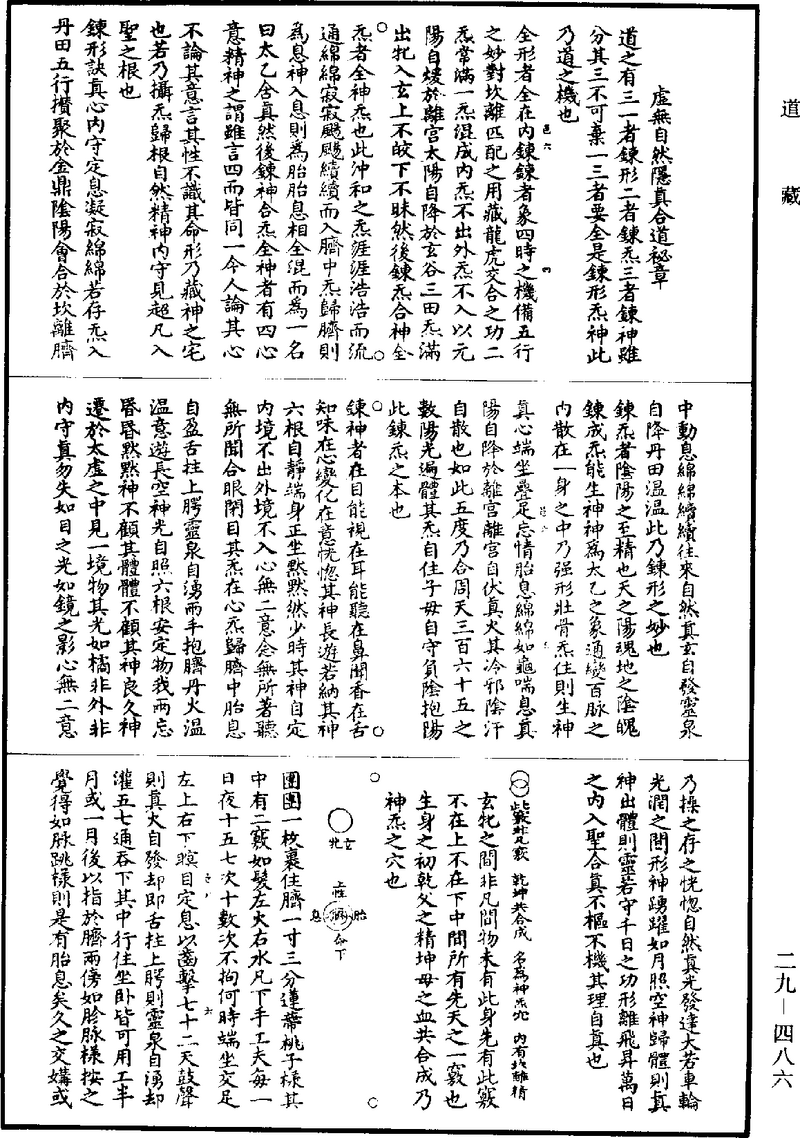 道藏
二九—四八六
虛無自然隱真合道祕章
道之有三一者鍊形二者鍊炁三者鍊神雖
分其三不可棄一三者要全是鍊形炁神此
乃道之機也
全形者全在內鍊鍊者象四時之機備五行
之妙對坎離匹配之用藏龍虎交合之功二
炁常滿一炁混成內炁不出外炁不入以元
陽自煖於離宮太陽自降於玄谷三田炁滿
出牝入玄上不皎下不昧然後鍊炁合神全
炁者全神炁也此沖和之炁涯涯浩浩而流
通綿綿寂寂颸颸續續而入臍中炁歸臍則
為息神入息則為胎胎息相全混而為一名
曰太乙含真然後鍊神合炁全神者有四心
意精神之謂雖言四而皆同一今人論其心
不論其意言其性不識其命形乃藏神之宅
也若乃攝炁歸根自然精神內守見超凡入
聖之根也
鍊形訣真心內守定息凝寂綿綿若存炁入
丹田五行攢聚於金鼎陰陽會合於坎離臍
中動息綿綿續續往來自然真玄自發靈泉
自降丹田温温此乃鍊形之妙也
鍊炁者陰陽之至精也天之陽魂地之陰魄
鍊成炁能生神神為太乙之象通變百脉之
內散在一身之中乃强形壯骨炁住則生神
真心端坐疊足忘情胎息綿綿如龜喘息真
陽自降於離宮離宮自伏真火其冷邪陰汗
自散也如此五度乃合周天三百六十五之
數陽光遍體其炁自住子母自守負陰抱陽
此鍊炁之本也
鍊神者在目能視在耳能聽在鼻聞香在舌
知味在心變化在意恍惚其神長遊若納其神
六根自靜端身正坐默默然少時其神自定
內境不出外境不入心無二意念無所著聽
無所聞合眼閉目其炁在心炁歸臍中胎息
自盈舌柱上腭靈泉自湧兩手抱臍丹火温
温意遊長空神光自照六根安定物我兩忘
昏昏默默神不顧其體體不顧其神良久神
遷於太虛之中見一境物其光如橘非外非
內守真勿失如日之光如鏡之影心無二意
乃操之存之恍惚自然真光發達大若車輪
光潤之間形神踴躍如月照空神歸體則真
神出體則靈若守千日之功形離飛昇萬日
之內入聖合真不樞不機其理自真也
此竅非凡竅 乾坤共合成 名為神炁穴 內有坎離精
玄牝之間非凡間物未有此身先有此竅
不在上不在下中間所有先天之一竅也
生身之初乾父之精坤母之血共合成乃
神炁之穴也
玄牝
性 胎 息 命下
團團一枚裹住臍一寸三分蓮蔕桃子樣其
中有二竅如髮左火右水凡下手工夫每一
日夜十五七次十數次不拘何時端坐交足
左上右下瞑目定息以齒擊七十二天鼓聲
則真火自發却即舌柱上腭則靈泉自湧却
灌五七通吞下其中行住坐卧皆可用工半
月或一月後以指於臍兩傍如胗脉樣按之
覺得如脉跳樣則是有胎息矣久之交媾或